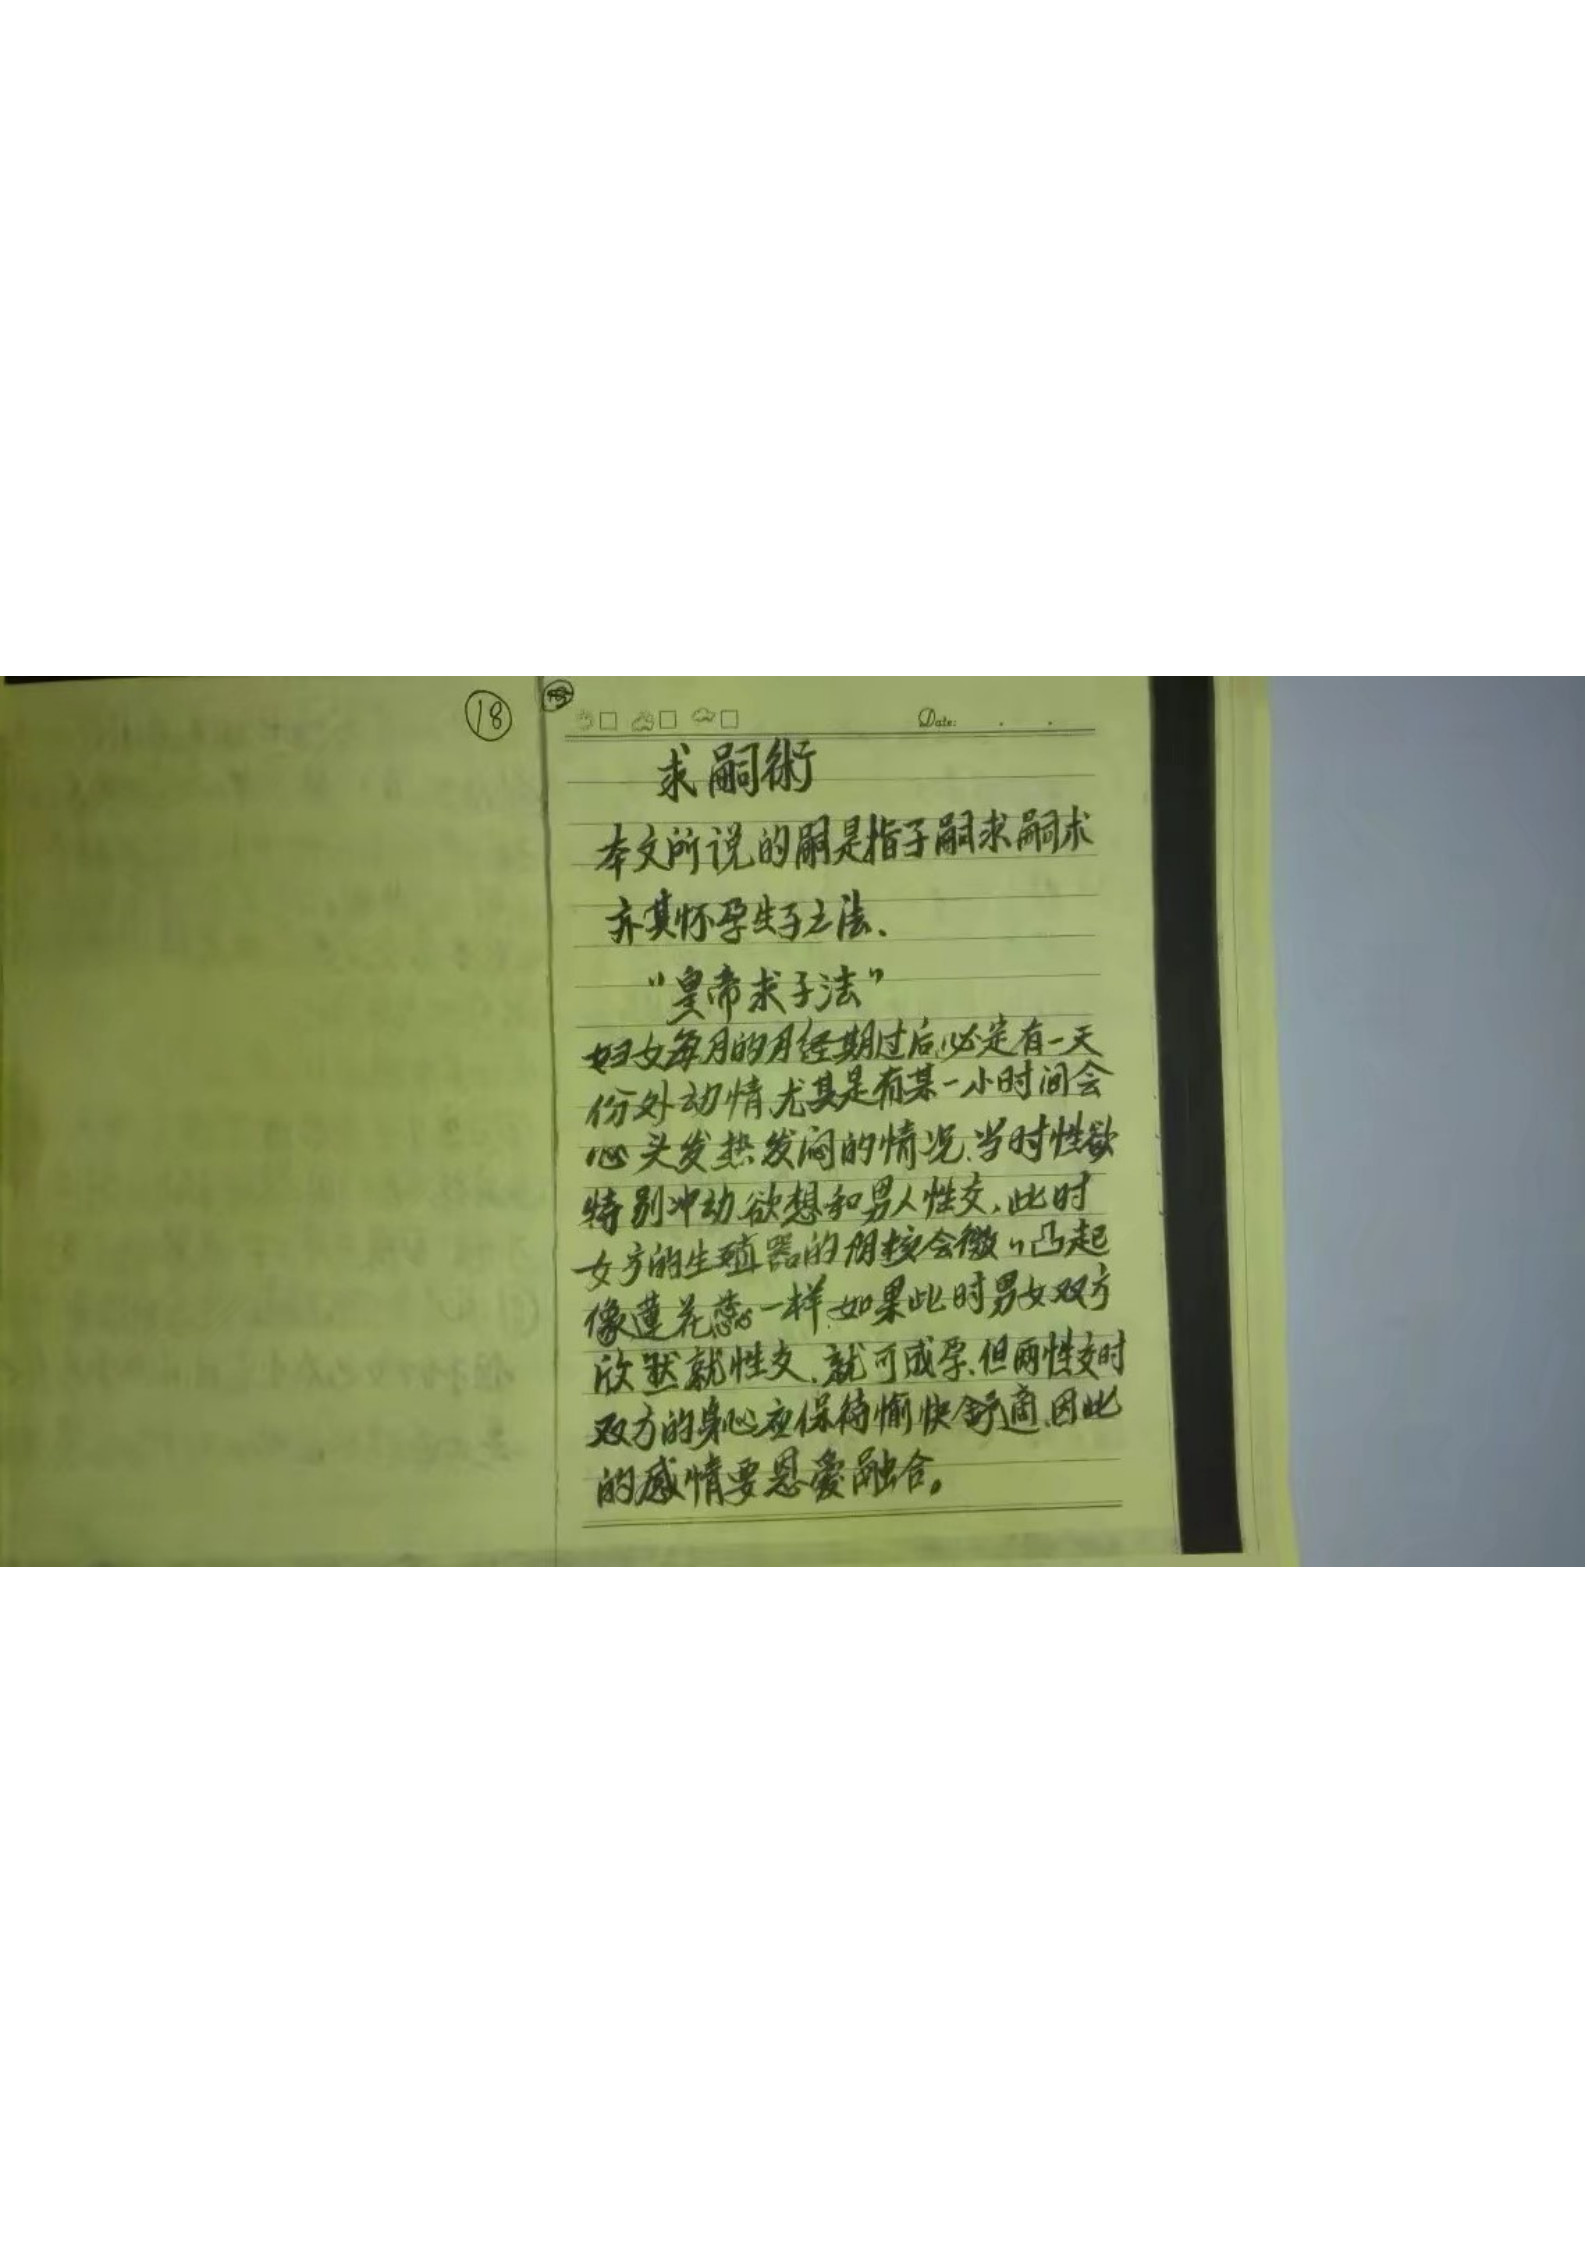 18
Date:
求嗣術
本文所说的嗣是指子嗣求嗣术
亦其怀孕生子之法、
“皇帝求子法”
妇女每月的月经期过后，必定有一天
份外动情，尤其是有某一小时间会
心头发热发闷的情况、当时性欲
特别冲动，欲想和男人性交，此时
女方的生殖器的阴核会微〃凸起
像蓮花蕊一样，如果此时男女双方
欣然就性交、就可成孕、但两性交时
双方的身心应保待愉快舒適、因此
的感情要恩爱融合。